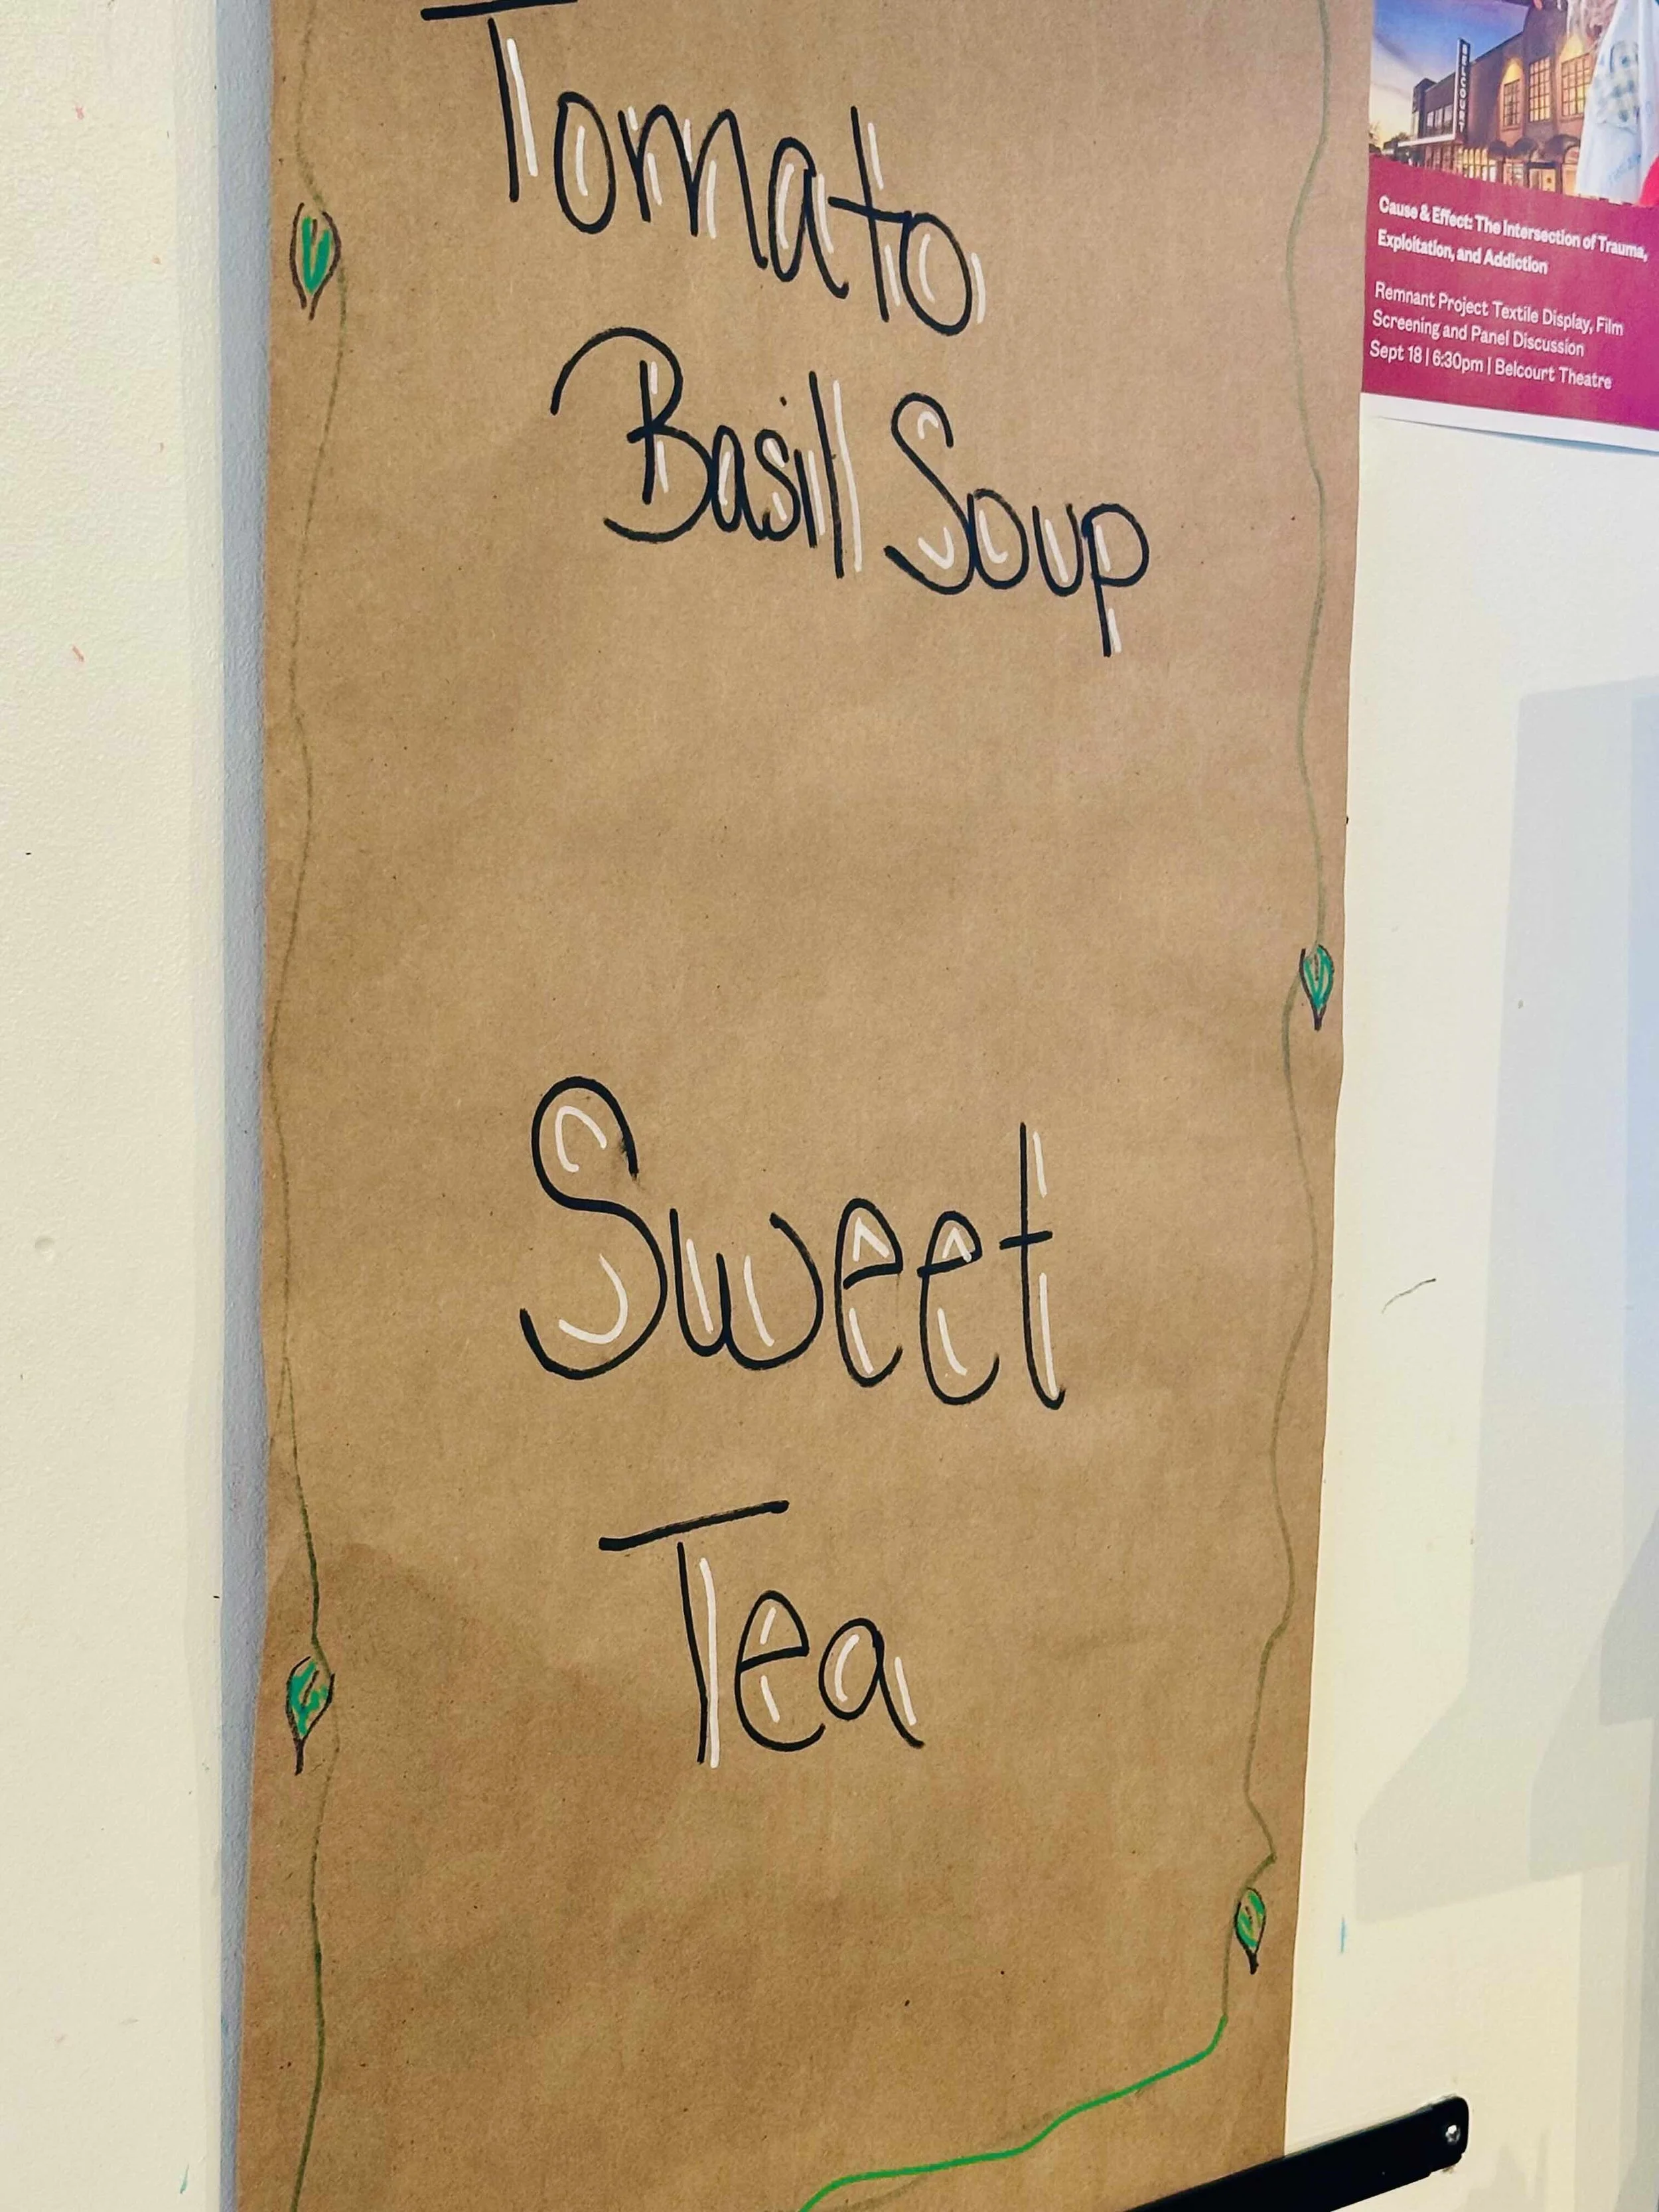 Tomato
Basill Soup
Sweet
Tea
BELCOURT
Cause & Effect: The Intersection of Trauma,
Exploitation, and Addiction
Remnant Project Textile Display, Film
Screening and Panel Discussion
Sept 18 | 6:30pm | Belcourt Theatre